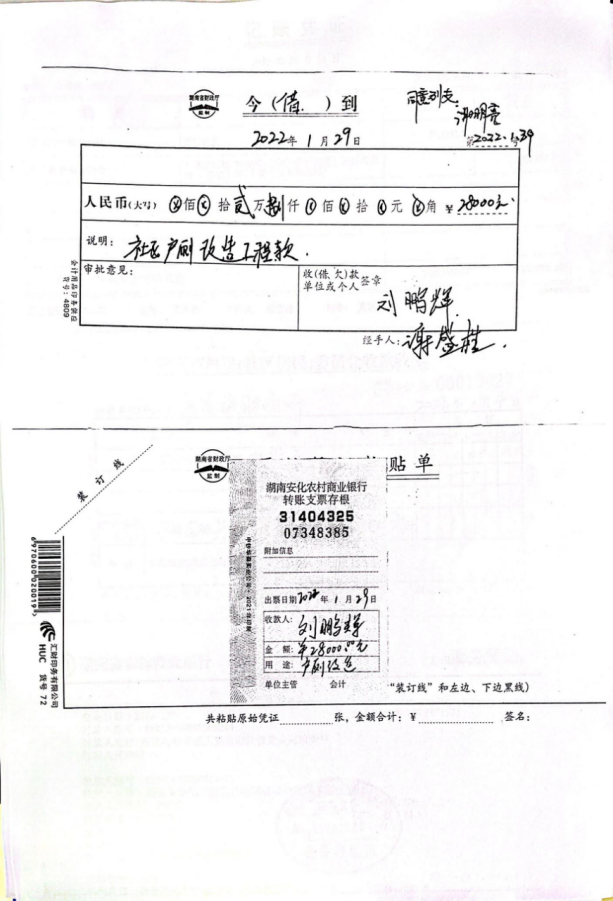 湖南省财政厅
监制
今(借)到
同意列支.
谢明亮
2022.1.29
2022年1月29日
人民币(大写) ⊗佰⊗拾贰万捌仟⊗佰⊗拾⊗元⊗角 ¥28000元
说明: 社区户厕改造工程款.
审批意见:
收(借、欠)款
单位或个人 签章
刘鹏辉
经手人: 谢盛桂.
会计用品印务供应
货号: 4809
装订线
湖南省财政厅
监制
贴单
湖南安化农村商业银行
转账支票存根
31404325
07348385
附加信息
出票日期2022年1月29日
收款人:
刘鹏辉
金额: ¥28000.00元
用途: 户厕改造
单位主管 会计
"装订线"和左边、下边黑线)
共粘贴原始凭证 张,金额合计:¥ 签名:
6970600020019
汇财印务有限公司
HUC 货号 72